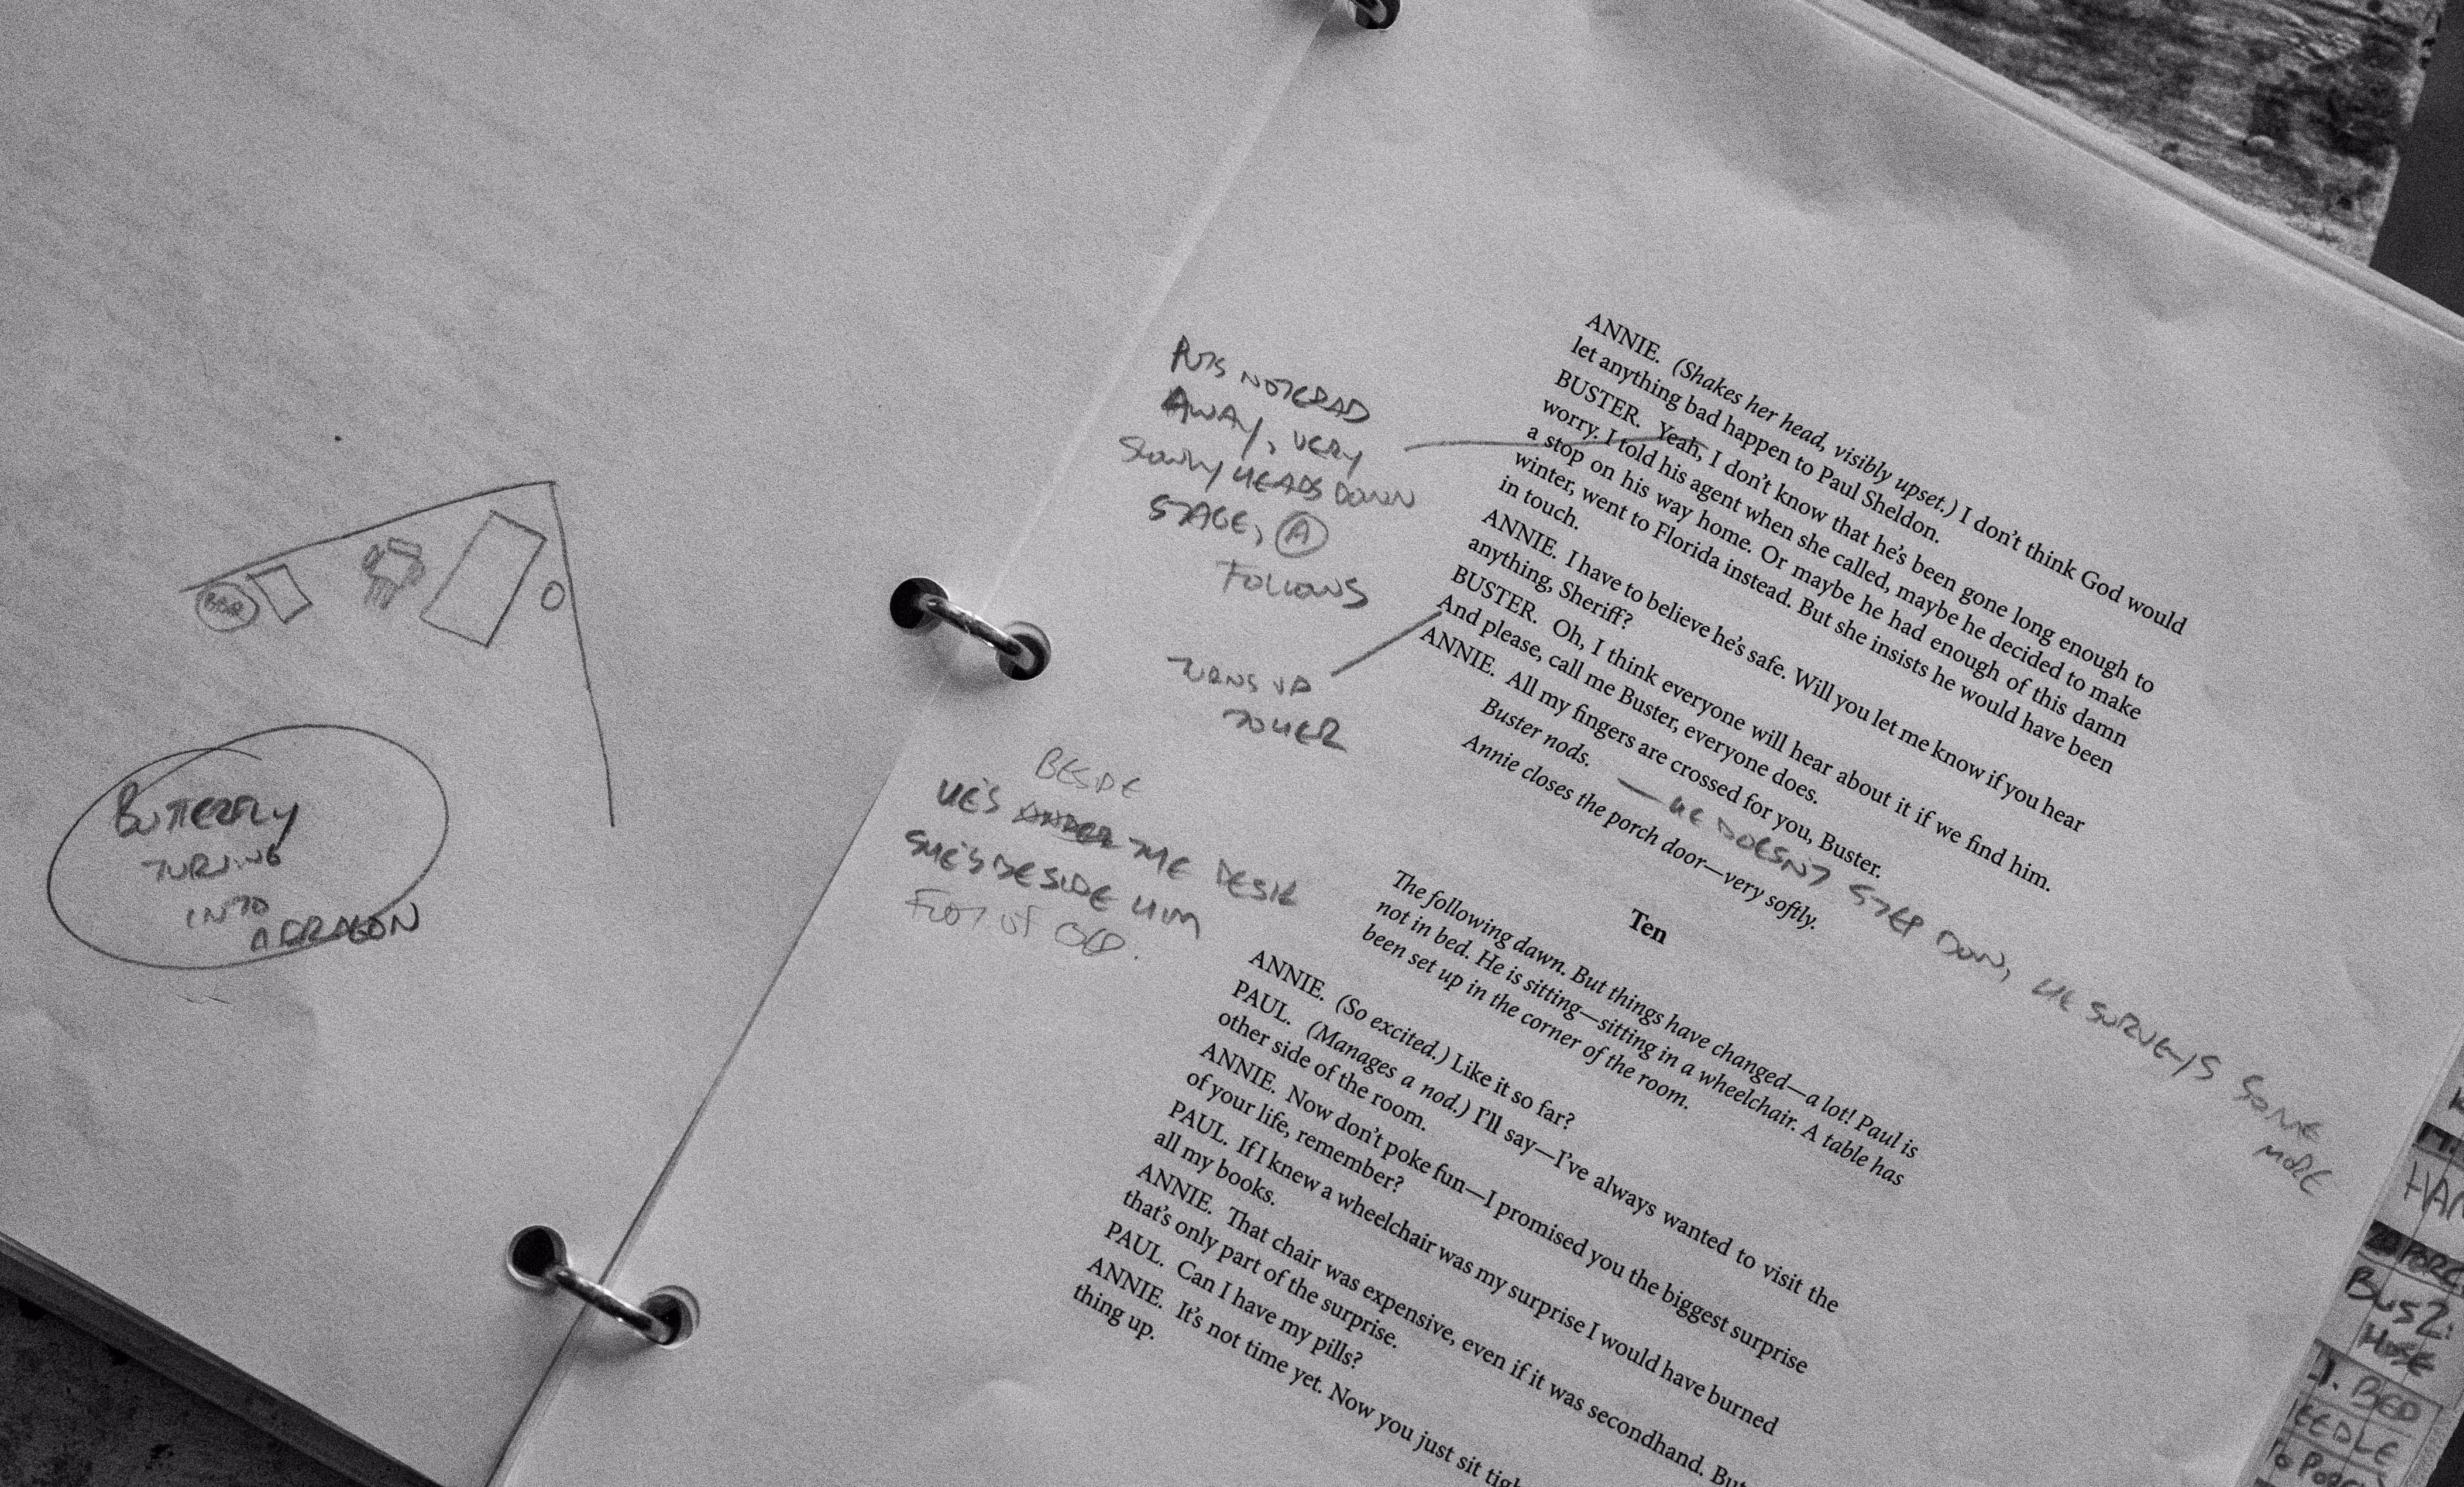 BUTTERFLY
TURNING
INTO
A DRAGON
PUTS NOTEPAD
AWAY, VERY
SLOWLY HEADS DOWN
STAGE, A
FOLLOWS
TURNS UP
TO HER
BESIDE
HE'S UNDER THE DESK
SHE'S BESIDE HIM
FOOT OF BED.
ANNIE. (Shakes her head, visibly upset.) I don't think God would
let anything bad happen to Paul Sheldon.
BUSTER. Yeah, I don't know that he's been gone long enough to
worry. I told his agent when she called, maybe he decided to make
a stop on his way home. Or maybe he had enough of this damn
winter, went to Florida instead. But she insists he would have been
in touch.
ANNIE. I have to believe he's safe. Will you let me know if you hear
anything, Sheriff?
BUSTER. Oh, I think everyone will hear about it if we find him.
And please, call me Buster, everyone does.
ANNIE. All my fingers are crossed for you, Buster.
Buster nods.
— HE DOESN'T STEP DOWN, HE SURVEYS SOME
MORE
Annie closes the porch door—very softly.
Ten
The following dawn. But things have changed—a lot! Paul is
not in bed. He is sitting—sitting in a wheelchair. A table has
been set up in the corner of the room.
ANNIE. (So excited.) Like it so far?
PAUL. (Manages a nod.) I'll say—I've always wanted to visit the
other side of the room.
ANNIE. Now don't poke fun—I promised you the biggest surprise
of your life, remember?
PAUL. If I knew a wheelchair was my surprise I would have burned
all my books.
ANNIE. That chair was expensive, even if it was secondhand. But
that's only part of the surprise.
PAUL. Can I have my pills?
ANNIE. It's not time yet. Now you just sit
thing up.
BUS 2:
HOSE
1. BED
EEDLE